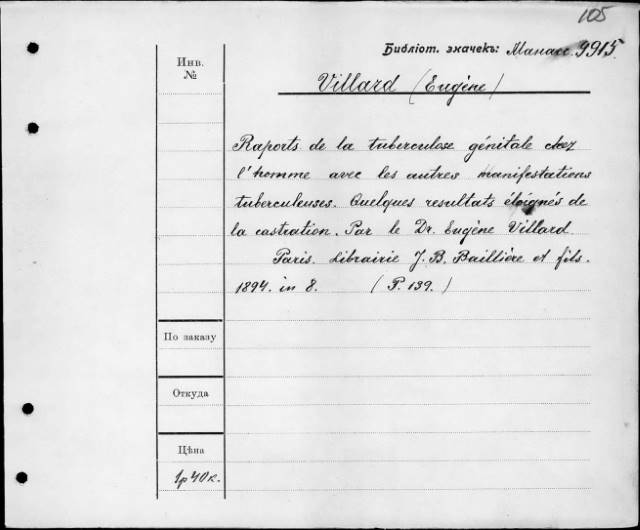 105
Библіот. значекъ: Манасс. 9915.
Инв.
№
Villard (Eugène)
Raports de la tuberculose génitale chez
l'homme avec les autres manifestations
tuberculeuses. Quelques resultats éloignés de
la castration. Par le Dr. Eugène Villard
Paris. Librairie J. B. Baillière et fils.
1894. in 8. (P. 139.)
По заказу
Откуда
Цѣна
1р 40к.